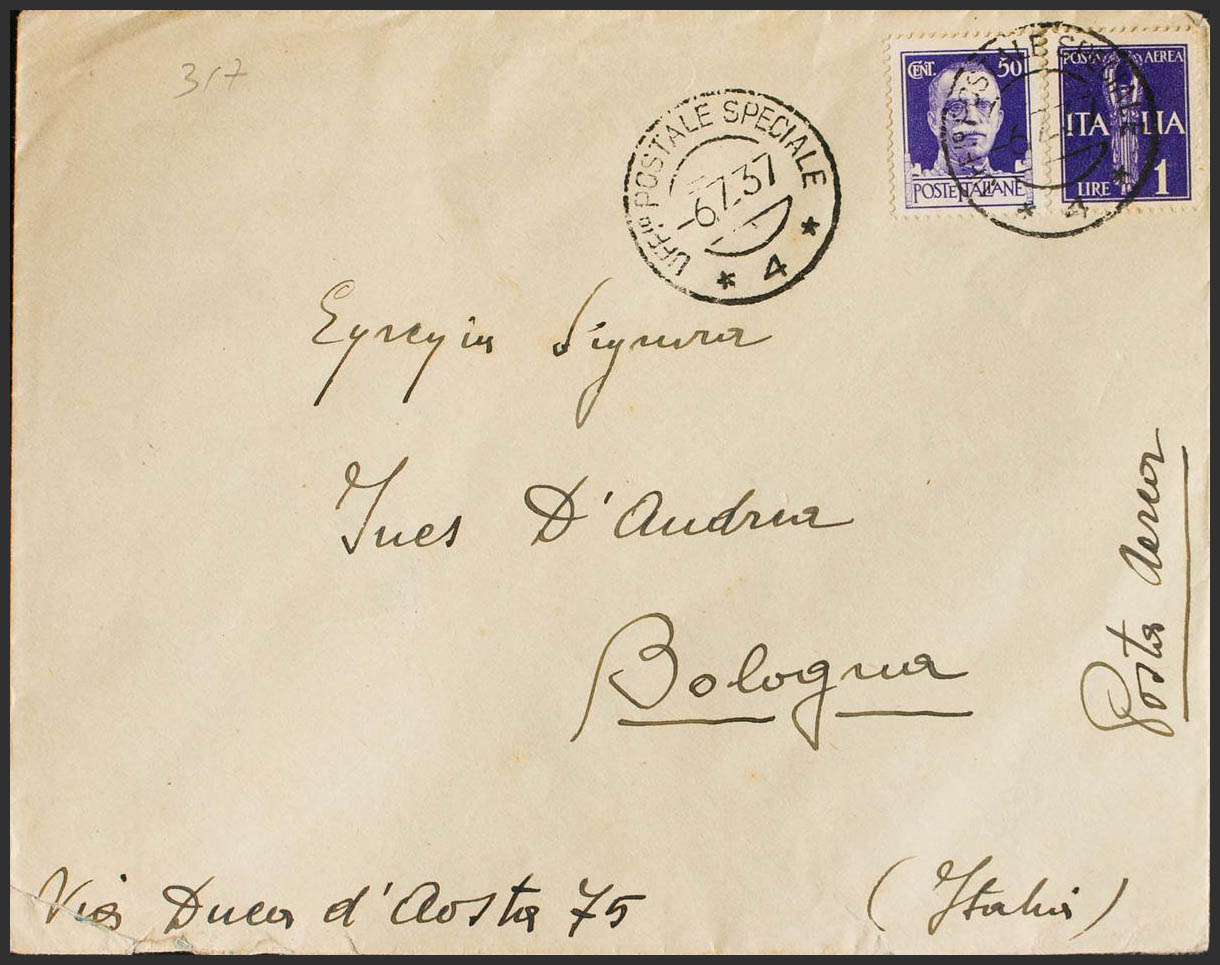 317
UFFIO POSTALE SPECIALE
-6.7.37
* 4 *
CENT. 50
POSTE ITALIANE
POSTA AEREA
ITALIA
LIRE 1
Egregia Signora
Ines D'Andrea
Bologna
Posta Aerea
Via Duca d'Aosta 75
(Italia)